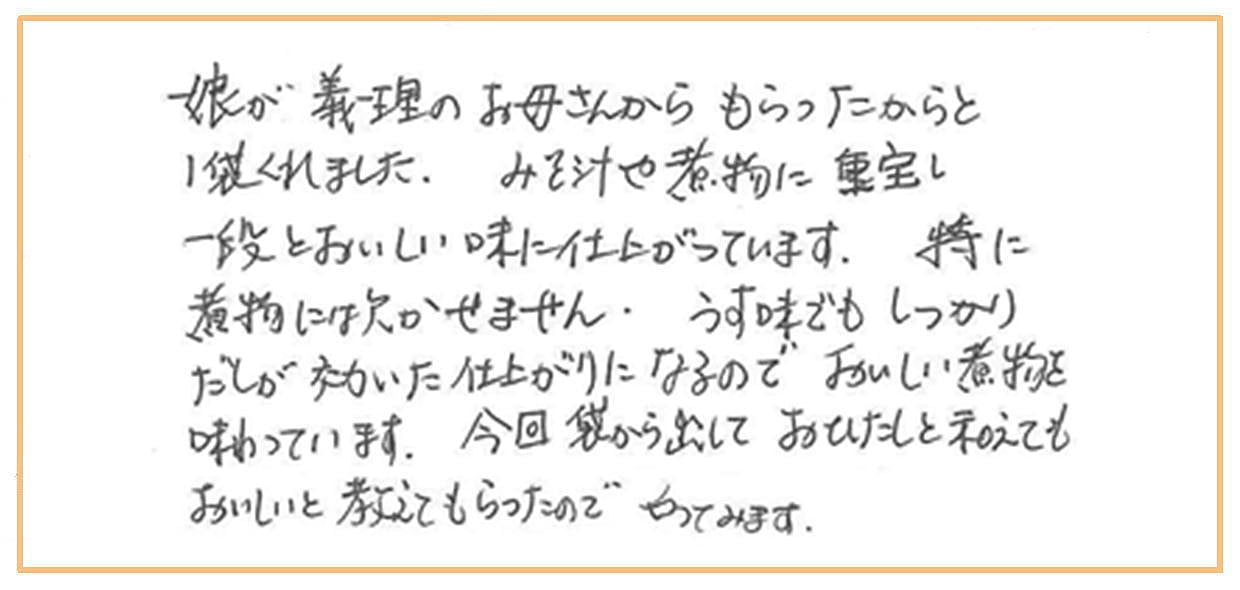 娘が義理のお母さんからもらったからと
1袋くれました. みそ汁や煮物に重宝し
一段とおいしい味に仕上がっています. 特に
煮物には欠かせません. うす味でもしっかり
だしが効いた仕上がりになるのでおいしい煮物を
味わっています. 今回袋から出しておひたしと和えても
おいしいと教えてもらったのでやってみます.